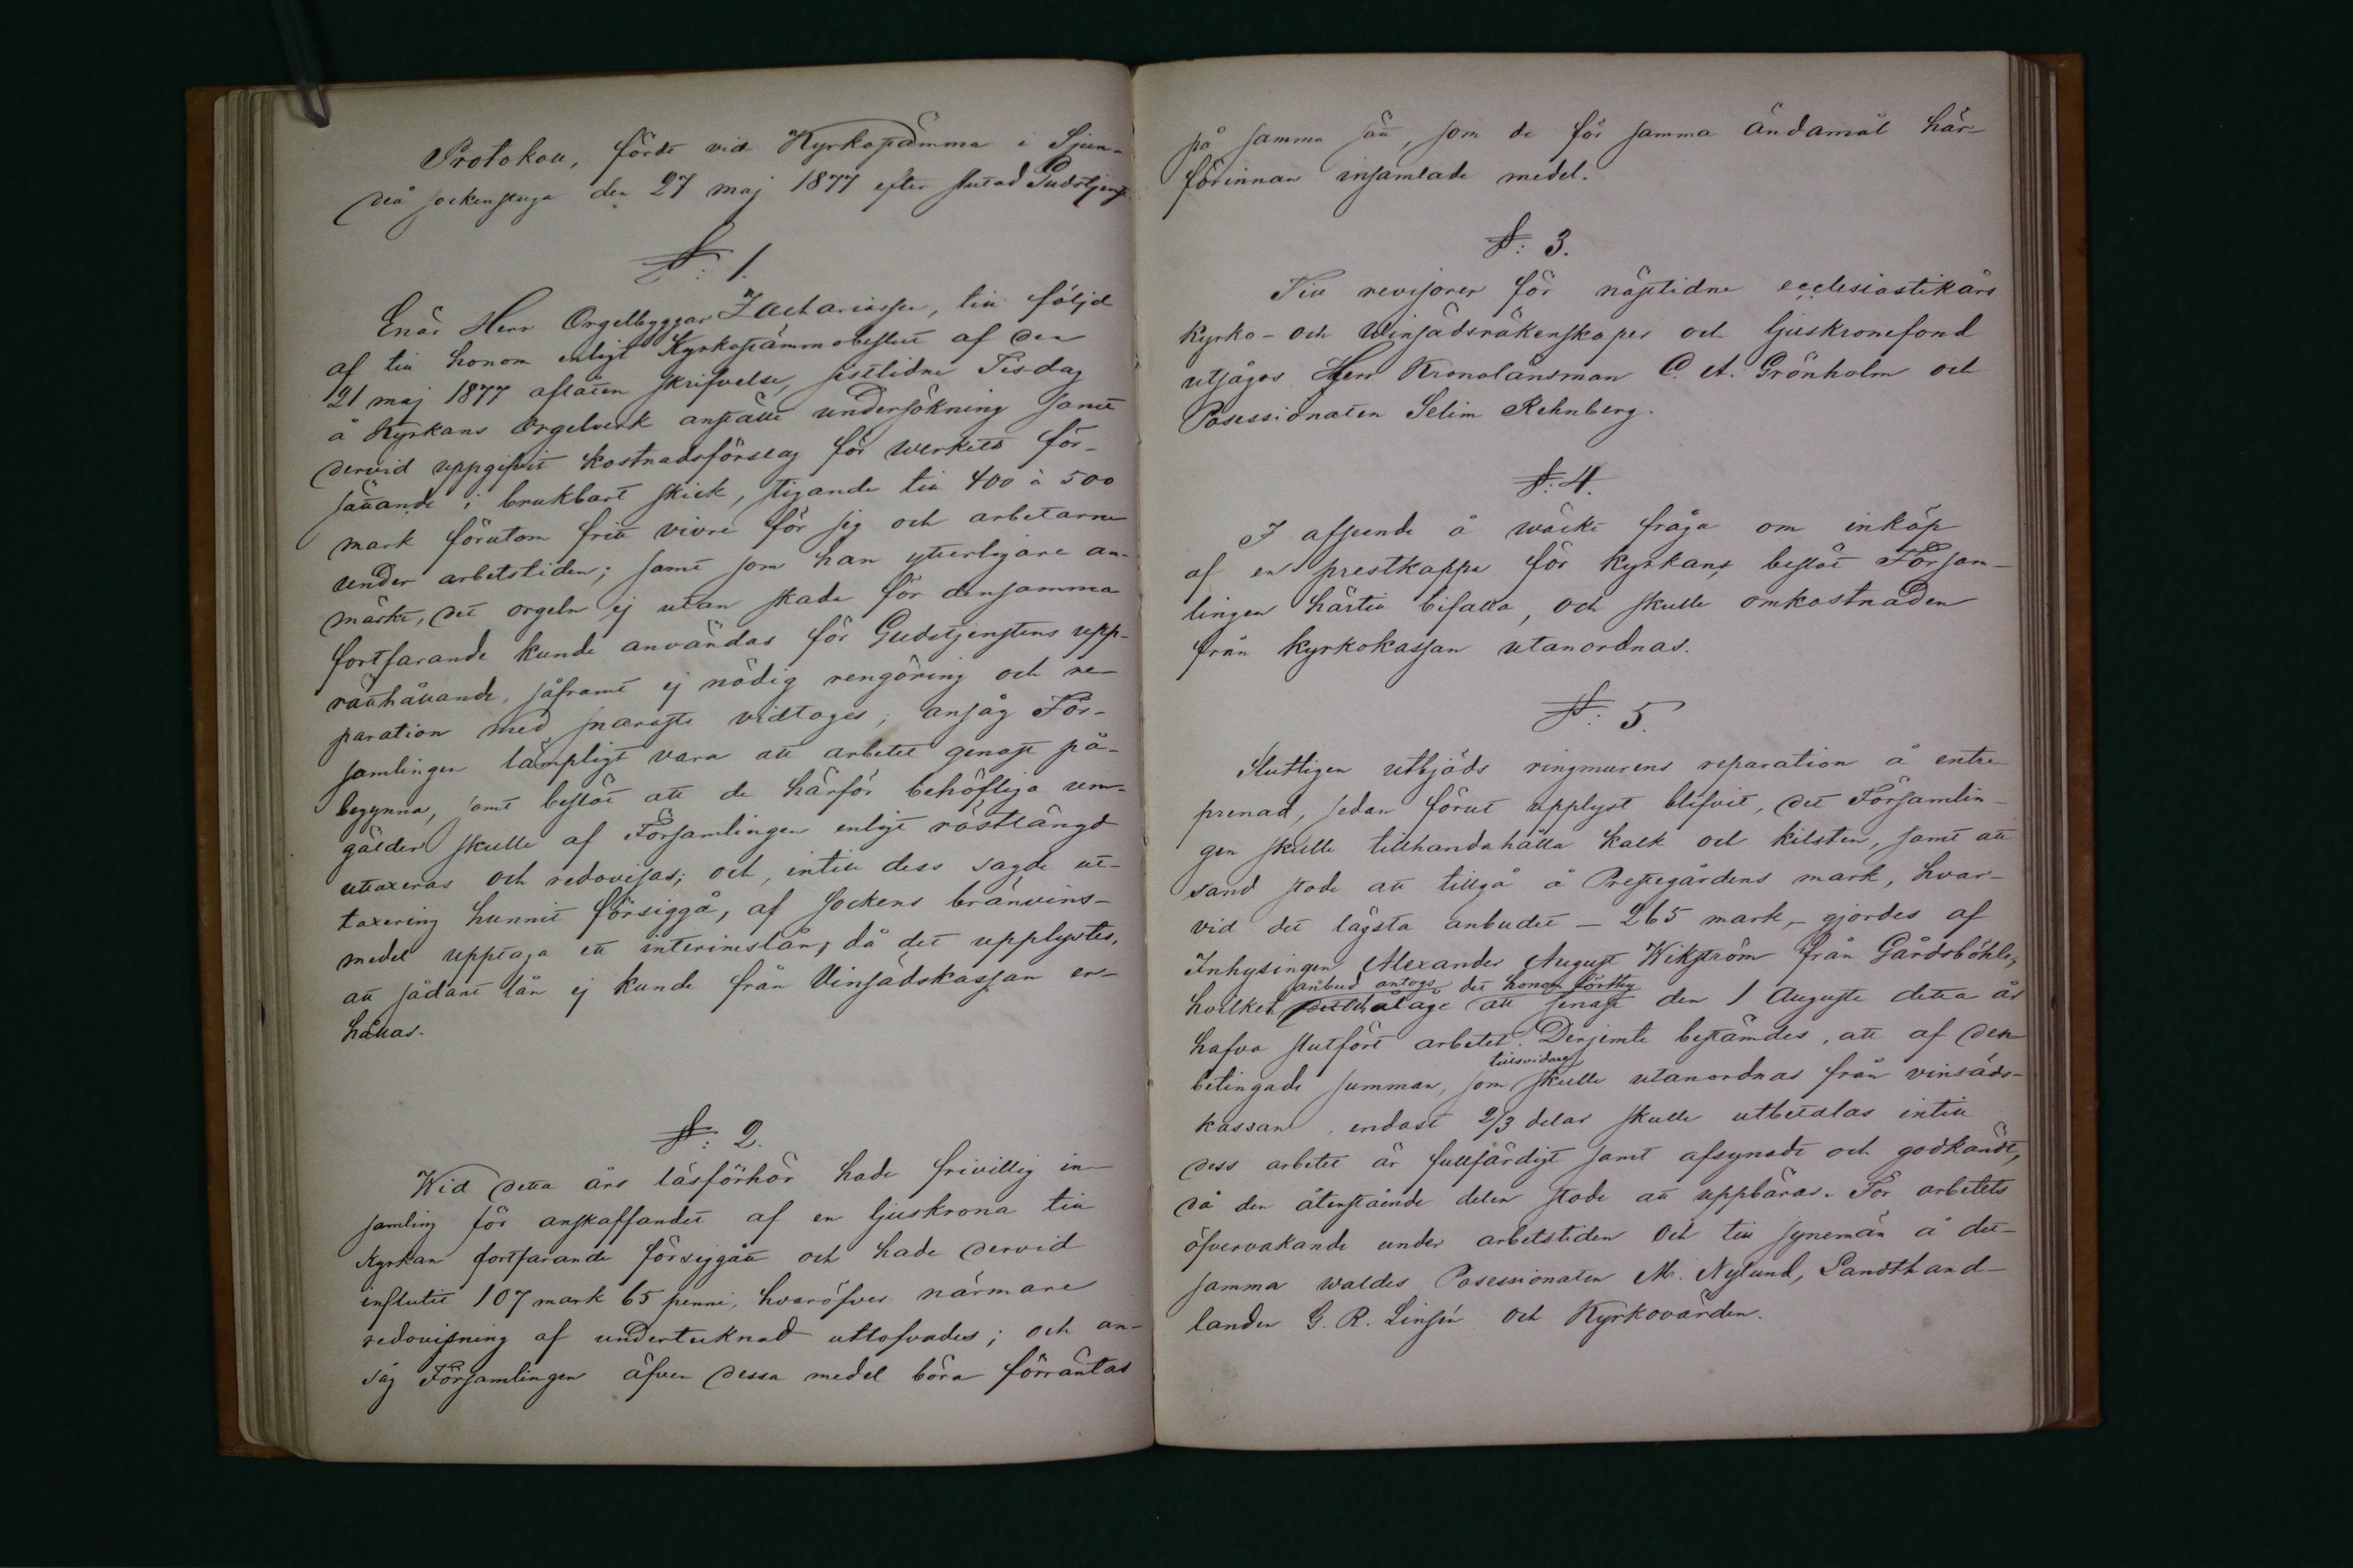 Protokoll, fördt vid Kyrkostämma i Sjun-
deå sockenstuga den 27 maj 1877 efter slutad Gudstjenst
§: 1.
Enär Herr Orgelbyggar Zachariassen, till följd
af till honom enligt Kyrkostämmobeslut af den
21 maj 1877 aflåten skrifvelse, sistlidne Tisdag
å Kyrkans Orgelverk anställt undersökning samt
dervid uppgifvit kostnadsförslag för werkets för-
sättande i brukbart skick, stigande till 400 à 500
mark förutom fritt vivre för sig och arbetarne
under arbetstiden; samt som han ytterligare an-
märkt, det orgeln ej utan skada för densamma
fortfarande kunde användas för Gudstjenstens upp-
rätthållande, såframt ej nödig rengöring och re-
paration med snaraste vidtages; ansåg För-
samlingen lämpligt vara att arbetet genast på-
begynna, samt beslöt att de härför behöfliga um-
gälder skulle af Församlingen enligt röstlängd
uttaxeras och redovisas; och, intill dess sagde ut-
taxering hunnit försiggå, af sockens bränvins-
medel upptaga ett interimslån, då det upplystes,
att sådant lån ej kunde från Vinsädskassan er-
hållas.
§: 2.
Wid detta års läsförhör hade frivillig in-
samling för anskaffandet af en ljuskrona till
Kyrkan fortfarande försiggått och hade dervid
influtit 107 mark 65 penni, hvaröfver närmare
redovisning af undertecknad utlofvades; och an-
såg Församlingen äfven dessa medel böra förräntas
på samma sätt, som de för samma ändamål här-
förinnan insamlade medel.
§: 3.
Till revisorer för nästlidne ecclesiastikårs
Kyrko- och Winsädsräkenskaper och ljuskronefond
utsågos Herr Kronolänsman C. A. Grönholm och
Possessionaten Selim Rehnberg.
§: 4.
I afseende å wäckt fråga om inköp
af en prestkappa för kyrkans, beslöt Försam-
lingen härtill bifalla, och skulle omkostnaden
från kyrkokassan utanordnas.
§: 5.
Slutligen utbjöds ringmurens reparation å entre-
prenad, sedan förut upplyst blifvit, det Församlin-
gen skulle tillhandahålla kalk och kilsten, samt att
sand stode att tillgå å Prestegårdens mark, hvar-
vid det lägsta anbudet - 265 mark, - gjordes af
Inhysingen Alexander August Wikström från Gårdsböhle,
anbud antogs, det honom förthy
hvilket ålåge att senast den 1 Auguste detta år
hafva slutfört arbetet. Derjemte bestämdes, att af den
tillsvidare
betingade summan, som skulle utanordnas från vinsäds-
kassan, endast 2/3 delar skulle utbetalas intill
dess arbetet är fullfärdigt samt afsynadt och godkändt,
då den återstående delen stode att uppbäras. För arbetets
öfvervakande under arbetstiden och till synemän å det-
samma waldes Possessionaten M. Nylund, Landthand-
landen G. R. Linsén och Kyrkovärden.